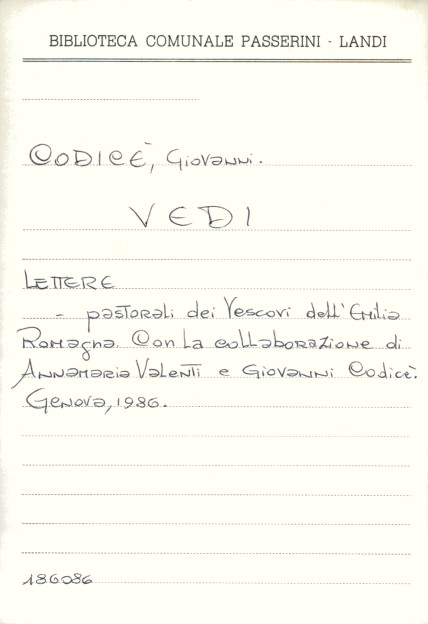 BIBLIOTECA COMUNALE PASSERINI - LANDI
CODICÈ, Giovanni.
VEDI
LETTERE
- pastorali dei Vescovi dell'Emilia
Romagna. Con la collaborazione di
Annamaria Valenti e Giovanni Codicè.
Genova, 1986.
186086